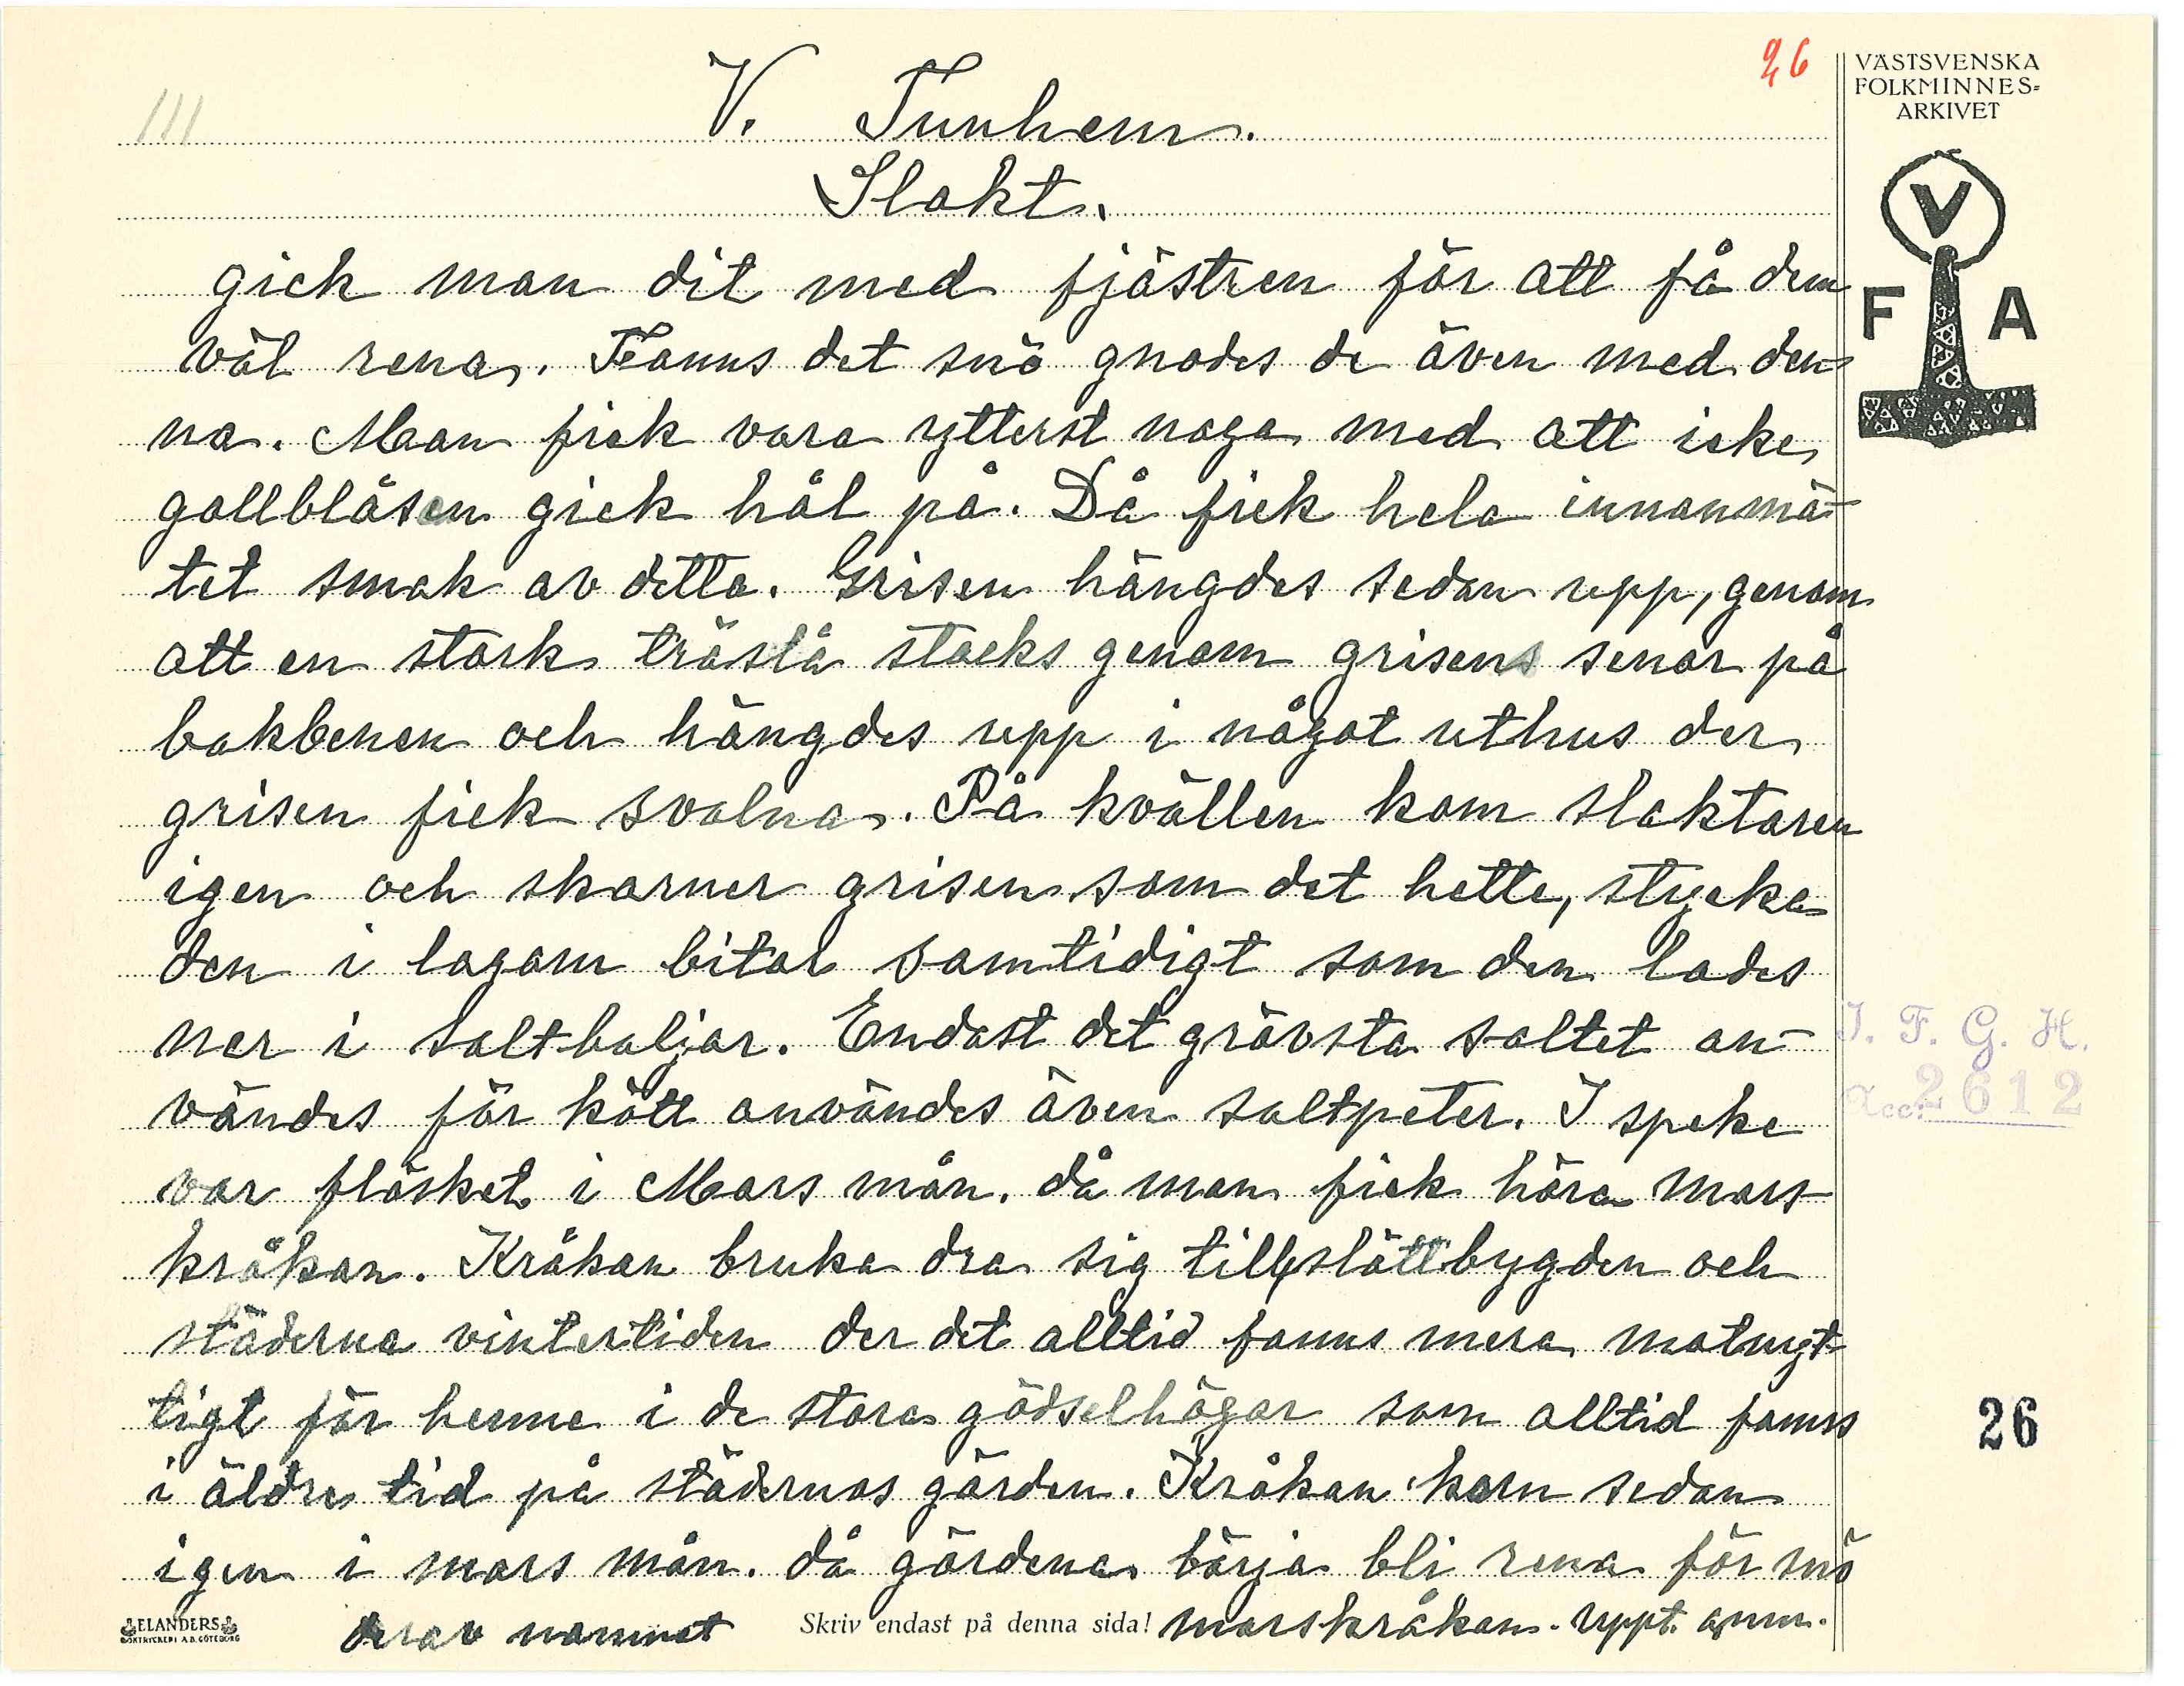 26
VÄSTSVENSKA
FOLKMINNES=
ARKIVET
111
V. Tunhem.
Slakt.
V
F A
gick man dit med fjästren för att få dem
väl rena. Fanns det snö gnodes de även med den
na. Man fick vara ytterst noga med att icke
gallblåsen gick hål på. Då fick hela innanmä-
tet smak av detta. Grisen hängdes sedan upp, genom
att en stark trästå stacks genom grisens senor på
bakbenen och hängdes upp i något uthus der
grisen fick svalna. På kvällen kom slaktaren
igen och skarner grisen som det hette, stycka
den i lagom bitar samtidigt som den lades
ner i saltbaljar. Endast det grövsta saltet an-
vändes för kött användes även saltpeter. I speke
var fläsket i Mars mån. då man fick höra mars
kråkan. Kråkan bruka dra sig till slättbygden och
städerna vintertiden der det alltid fanns mera matnyt-
tigt för henne i de stora gödselhögar som alltid fanns
i äldre tid på städernas gärden. Kråkan kom sedan
igen i mars mån. då gärdena börja bli rena för snö
derav namnet marskråkan. uppt. anm.
I. F. G. H.
Acc. 2612
26
ELANDERS
BOKTRYCKERI A.B. GÖTEBORG
Skriv endast på denna sida!